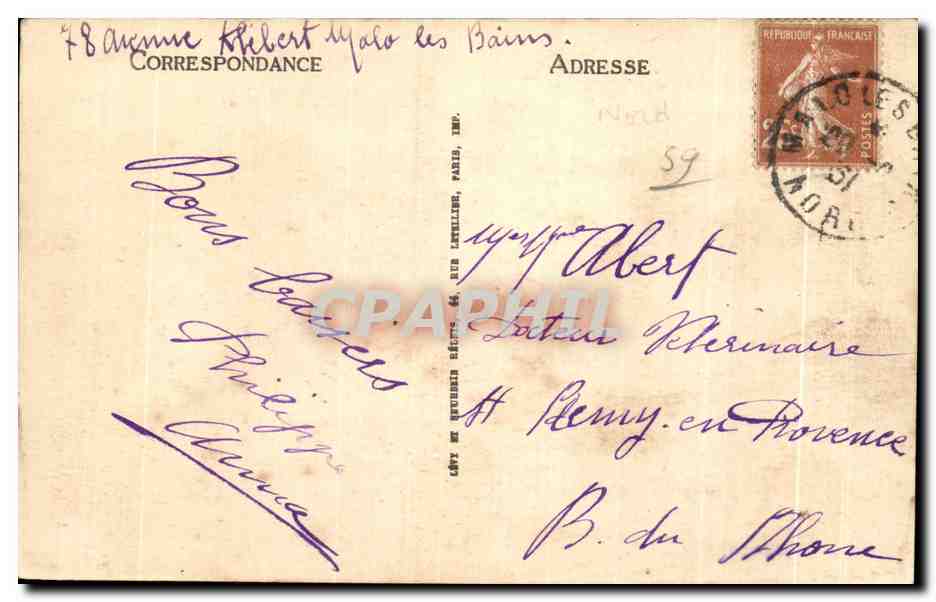 78 avenue Kléber Malo les Bains.
CORRESPONDANCE
ADRESSE
REPUBLIQUE FRANÇAISE
POSTES
MALO LES B
NORD
Nord
59
Bons
baisers
Philippe
Anna
LÉVY ET NEURDEIN RÉUNIS, 44, RUE LETELLIER, PARIS, IMP.
CPAPHIL
Abert
Docteur Vétérinaire
St Remy-en-Provence
B. du Rhone